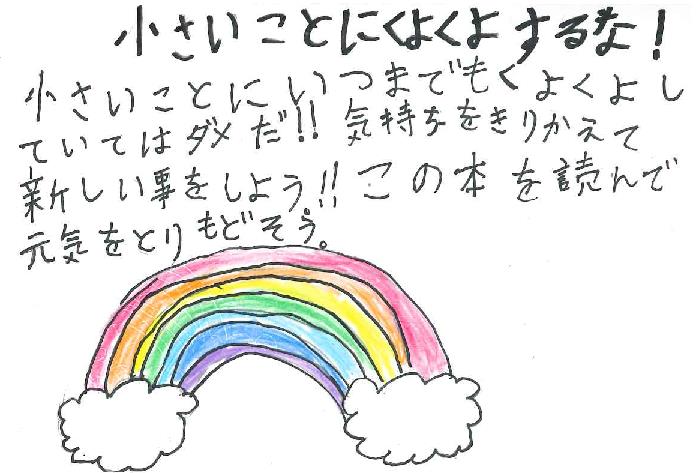 小さいことにくよくよするな！
小さいことにいつまでもくよくよし
ていてはダメだ!! 気持ちをきりかえて
新しい事をしよう!! この本を読んで
元気をとりもどそう。